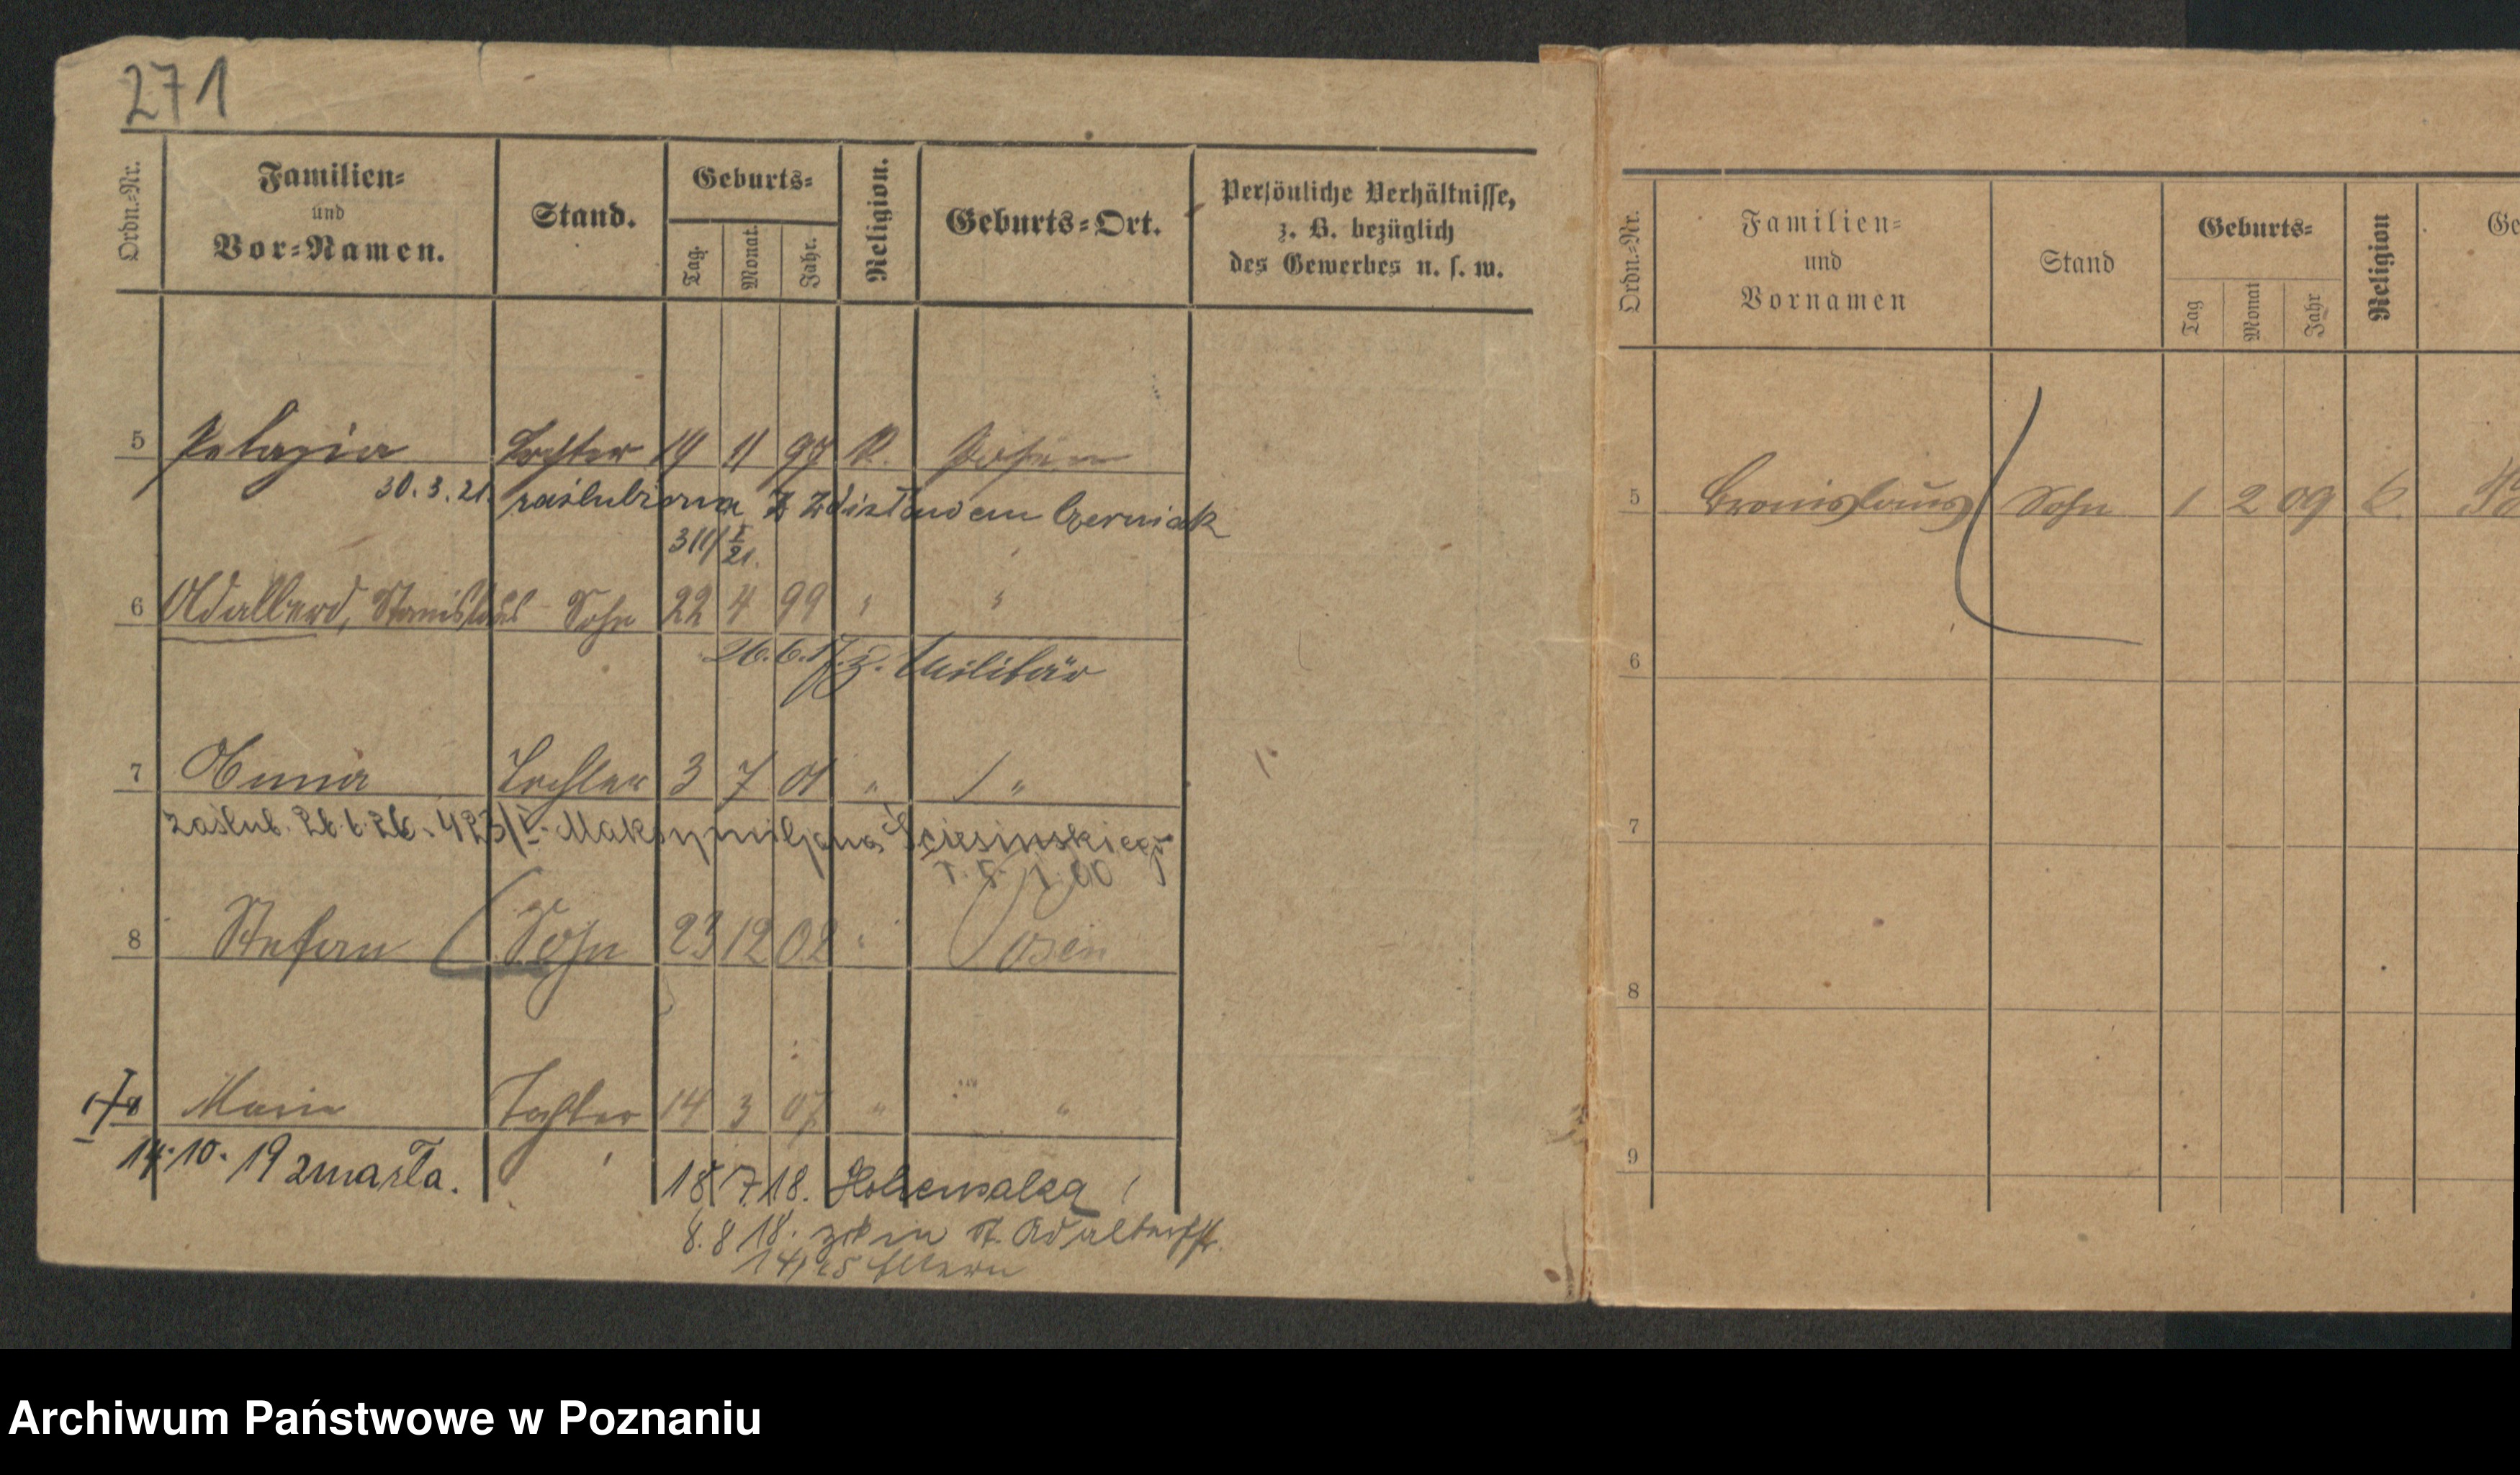 271
Ordn.-Nr.
Familien-
und
Vor-Namen.
Stand.
Geburts-
Tag.
Monat.
Jahr.
Religion.
Geburts-Ort.
Persönliche Verhältnisse,
z. B. bezüglich
des Gewerbes u. s. w.
5 Pelagia Tochter 19 11 97 K. Posen
30.3.21. zaślubiona z Zdzisławem Czerniak
311/I 21.
6 Adalbert, Stanislaus Sohn 22 4 99 " "
26.6.17. z. Militär
7 Anna Tochter 3 7 01 " "
zaślub. 26.1.26. 423/I Maksymiljana Ściesinskiego
8 Stefan Sohn 23 12 02 " Posen
8 Maria Tochter 14 3 07 " "
14.10.19 zmarła.
18/7 18. Hohensalza
8.8 18. zrk in St. Adalbertstr.
14/15 Eltern
Ordn.-Nr.
Familien-
und
Vornamen
Stand
Geburts-
Tag
Monat
Jahr
Religion
Ge
5 Bronislaus Sohn 1 2 09 K.
6
7
8
9
Archiwum Państwowe w Poznaniu